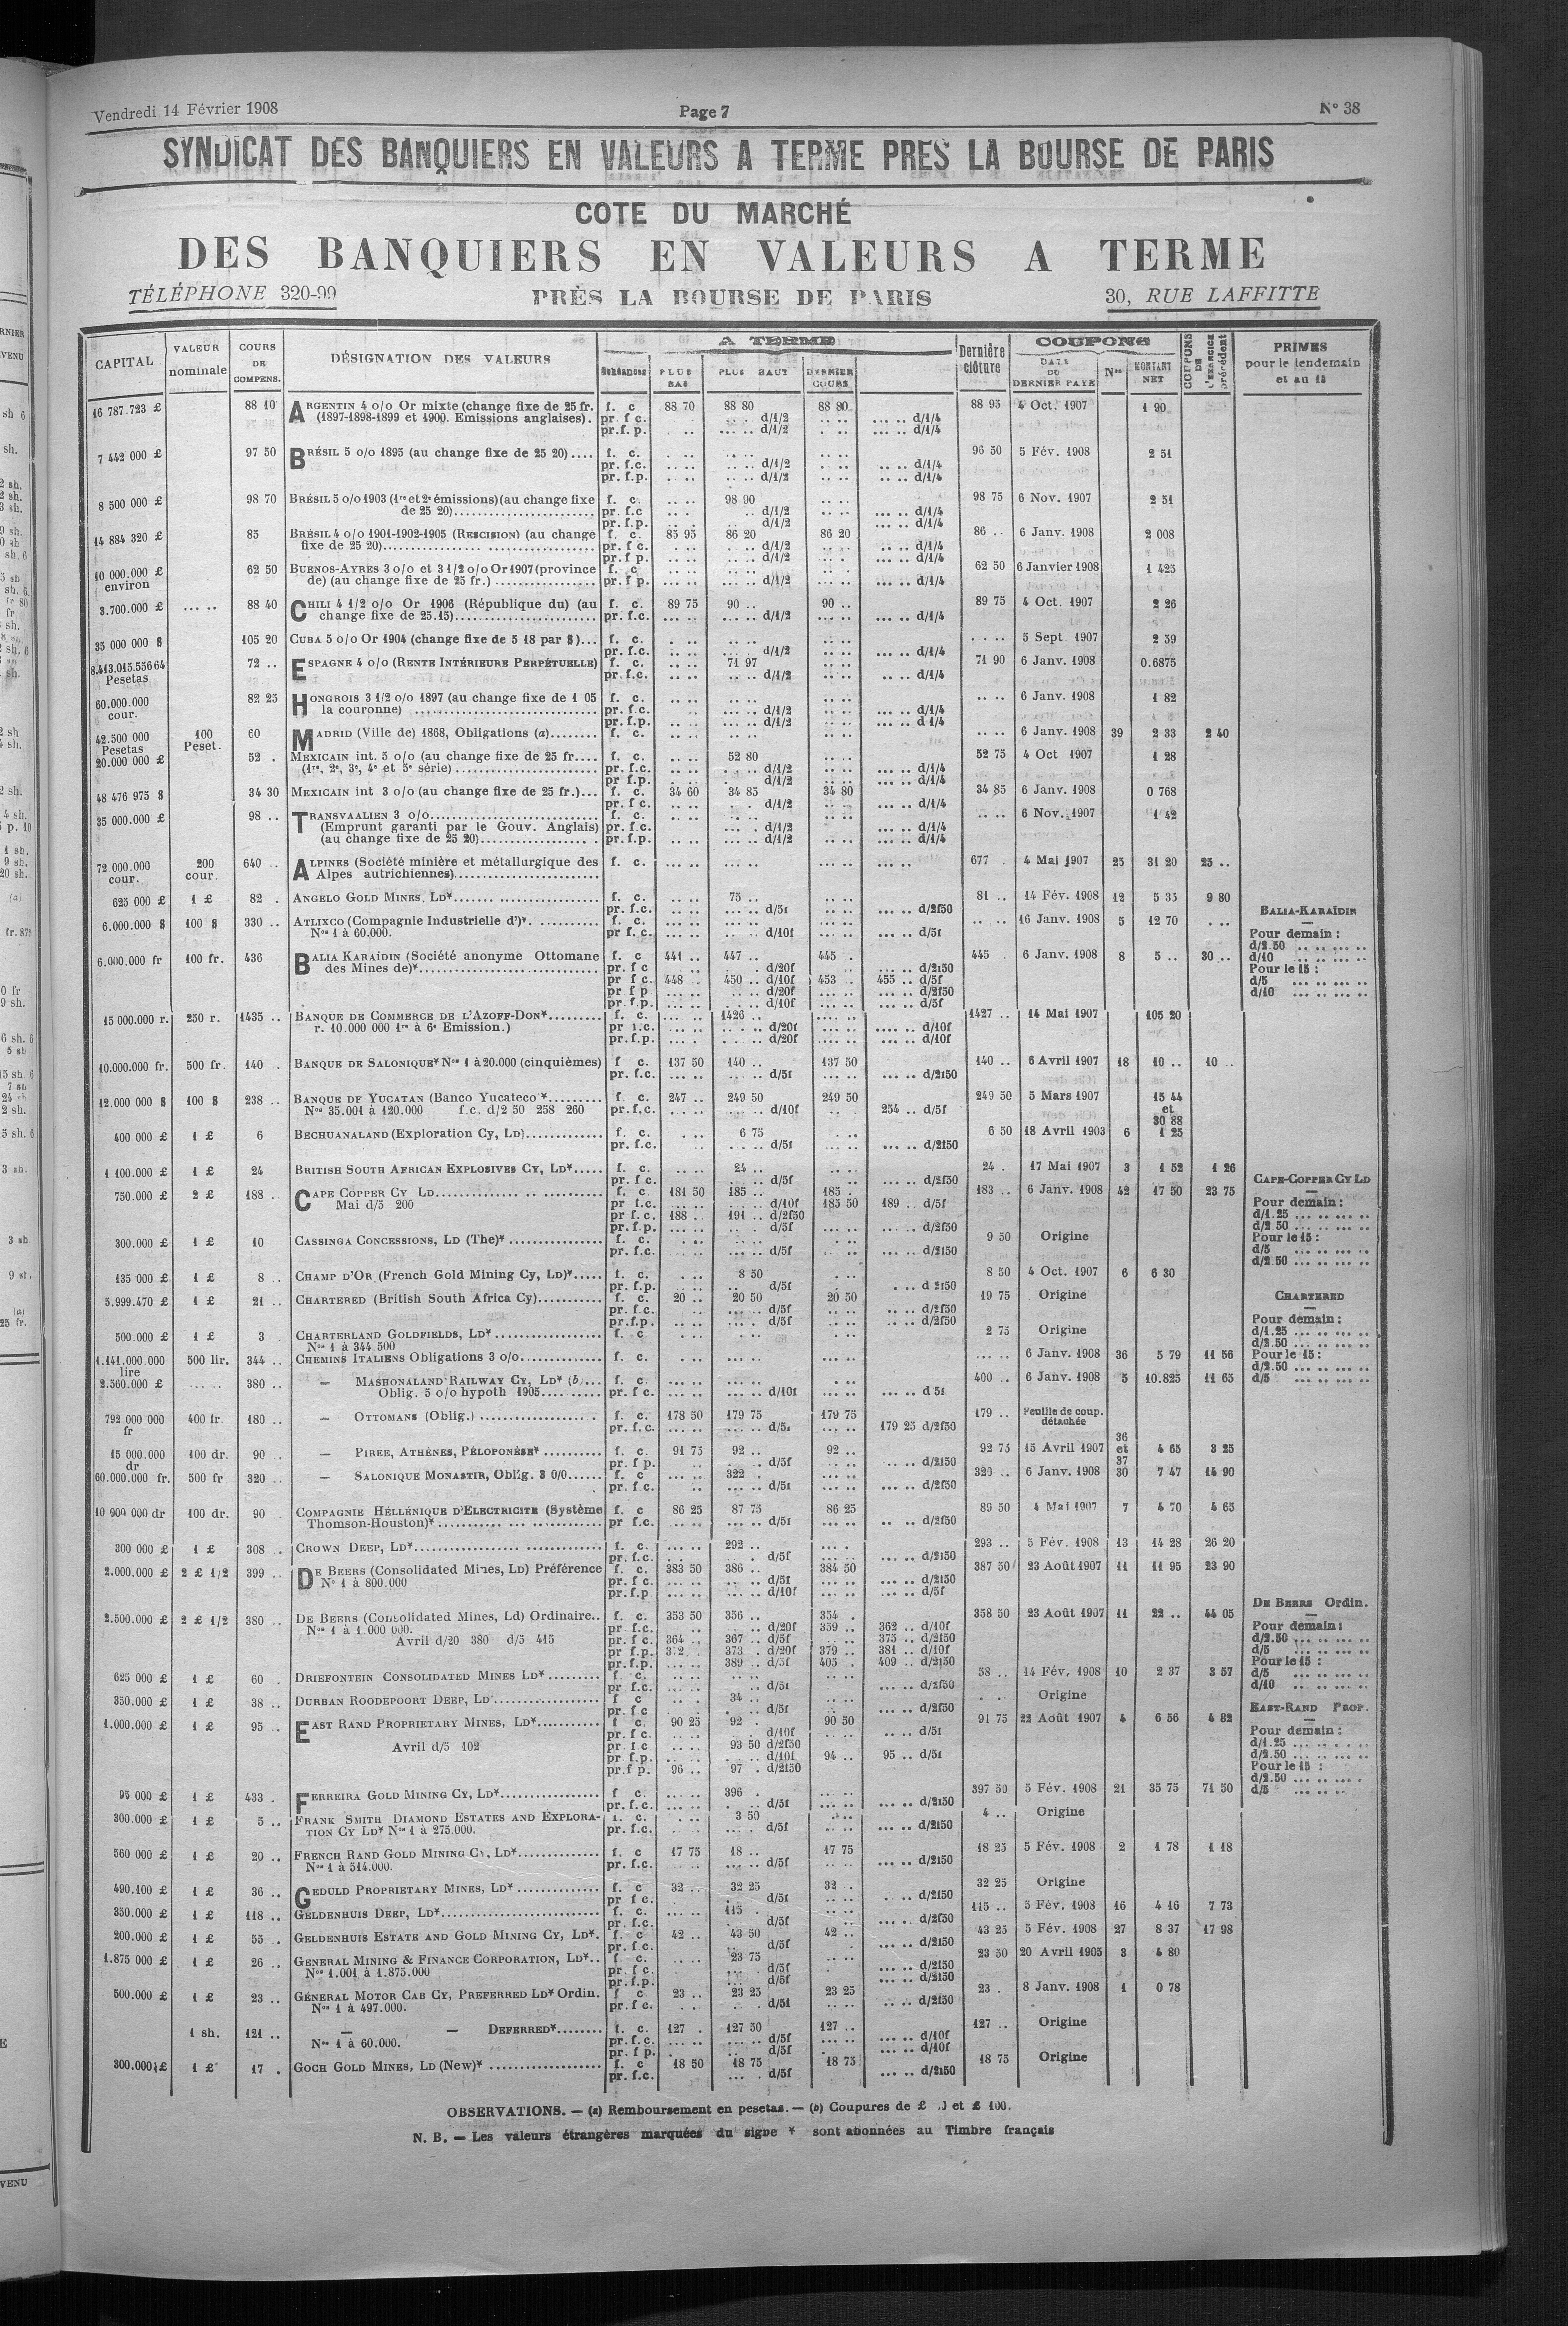 Vendredi 14 Février 1908 Page 7 N° 38
SYNDICAT DES BANQUIERS EN VALEURS A TERME PRES LA BOURSE DE PARIS
COTE DU MARCHÉ
DES BANQUIERS EN VALEURS A TERME
TÉLÉPHONE 320-99 PRÈS LA BOURSE DE PARIS 30, RUE LAFFITTE
CAPITAL VALEUR nominale COURS DE COMPENS. DÉSIGNATION DES VALEURS A TERME Echéances PLUS BAS PLUS HAUT DERNIER COURS Dernière clôture COUPONS DATE DU DERNIER PAYÉ Nos MONTANT NET COUPONS DE L'EXERCICE précédent PRIMES pour le lendemain et au 15
16 787.723 £ 88 10 ARGENTIN 4 o/o Or mixte (change fixe de 25 fr. f. c 88 70 88 80 88 80 88 95 4 Oct. 1907 1 90
(1897-1898-1899 et 1900. Emissions anglaises). pr. f c. d/1/2 d/1/4
pr.f. p. d/1/2 d/1/4
7 442 000 £ 97 50 BRÉSIL 5 o/o 1895 (au change fixe de 25 20).... f. c. 96 50 5 Fév. 1908 2 51
pr. f.c. d/1/2 d/1/4
pr. f.p. d/1/2 d/1/4
8 500 000 £ 98 70 BRÉSIL 5 o/o 1903 (1re et 2e émissions)(au change fixe f. c. 98 90 98 75 6 Nov. 1907 2 51
de 25 20) pr. f.c d/1/2 d/1/4
pr. f.p. d/1/2 d/1/4
14 884 320 £ 85 BRÉSIL 4 o/o 1901-1902-1905 (RESCISION) (au change f. c. 85 95 86 20 86 20 86 .. 6 Janv. 1908 2 008
fixe de 25 20) pr. f c. d/1/2 d/1/4
pr. f p. d/1/2 d/1/4
10 000.000 £ environ 62 50 BUENOS-AYRES 3 o/o et 3 1/2 o/o Or 1907 (province f. c 62 50 6 Janvier 1908 1 425
de) (au change fixe de 25 fr.) pr. f p. d/1/2 d/1/4
3.700.000 £ 88 40 CHILI 4 1/2 o/o Or 1906 (République du) (au f. c. 89 75 90 .. 90 .. 89 75 4 Oct. 1907 2 26
change fixe de 25.15) pr. f.c. d/1/2 d/1/4
35 000 000 $ 105 20 CUBA 5 o/o Or 1904 (change fixe de 5 18 par $)... f. c. 5 Sept 1907 2 59
pr. f.c. d/1/2 d/1/4
8.413.015.556 64 Pesetas 72 .. ESPAGNE 4 o/o (RENTE INTÉRIEURE PERPÉTUELLE) f. c. 71 97 71 90 6 Janv. 1908 0.6875
pr. f.c. d/1/2 d/1/4
60.000.000 cour. 82 25 HONGROIS 3 1/2 o/o 1897 (au change fixe de 1 05 f. c. 6 Janv. 1908 1 82
la couronne) pr. f.c. d/1/2 d/1/4
pr. f.p. d/1/2 d 1/4
42.500 000 Pesetas 100 Peset. 60 MADRID (Ville de) 1868, Obligations (a) f. c. 6 Janv. 1908 39 2 33 2 40
20.000 000 £ 52 . MEXICAIN int. 5 o/o (au change fixe de 25 fr.... f. c. 52 80 52 75 4 Oct 1907 1 28
(1re, 2e, 3e, 4e et 5e série) pr. f.c. d/1/2 d/1/4
pr f.p. d/1/2 d/1/4
48 476 975 $ 34 30 MEXICAIN int 3 o/o (au change fixe de 25 fr.)... f. c. 34 60 34 85 34 80 34 85 6 Janv. 1908 0 768
pr. f c. d/1/2 d/1/4
35 000.000 £ 98 .. TRANSVAALIEN 3 o/o f. c. 6 Nov. 1907 1 42
(Emprunt garanti par le Gouv. Anglais) pr. f.c. d/1/2 d/1/4
(au change fixe de 25 20) pr. f.p. d/1/2 d/1/4
72 000.000 cour. 200 cour. 640 .. ALPINES (Société minière et métallurgique des f. c. 677 . 4 Mai 1907 25 31 20 25 ..
Alpes autrichiennes)
625 000 £ 1 £ 82 . ANGELO GOLD MINES, LD* f. c. 75 .. 81 .. 14 Fév. 1908 12 5 35 9 80
pr. f.c. d/5f d/2f50
6.000.000 $ 100 $ 330 .. ATLIXCO (Compagnie Industrielle d')*. f. c. 16 Janv. 1908 5 12 70
Nos 1 à 60.000. pr f.c. d/10f d/5f
6.000.000 fr 100 fr. 436 BALIA KARAÏDIN (Société anonyme Ottomane f. c 441 .. 447 .. 445 . 445 . 6 Janv. 1908 8 5 .. 30 ..
des Mines de)* pr. f c d/20f d/2f50
pr f c. 448 . 450 .. d/10f 453 .. 455 .. d/5f
pr f p d/20f d/2f50
pr. f.p. d/10f d/5f
BALIA-KARAÏDIN
Pour demain :
d/2.50
d/10
Pour le 15 :
d/5
d/10
15 000.000 r. 250 r. 1435 .. BANQUE DE COMMERCE DE L'AZOFF-DON* f. c. 1426 .. 1427 .. 14 Mai 1907 105 20
r. 10.000 000 1re à 6e Emission.) pr f.c. d/20f d/10f
pr. f.p. d/20f d/10f
10.000.000 fr. 500 fr. 140 BANQUE DE SALONIQUE* Nos 1 à 20.000 (cinquièmes) f c. 137 50 140 .. 137 50 140 .. 6 Avril 1907 18 10 .. 10 ..
pr. f.c. d/5f d/2f50
12.000 000 $ 100 $ 238 .. BANQUE DE YUCATAN (Banco Yucateco * f c. 247 .. 249 50 249 50 249 50 5 Mars 1907 15 44 et 30 88
Nos 35.001 à 120.000 f.c. d/2 50 258 260 pr. f.c. d/10f 254 .. d/5f
400 000 £ 1 £ 6 BECHUANALAND (Exploration Cy, LD) f. c. 6 75 6 50 18 Avril 1903 6 1 25
pr. f.c. d/5f d/2f50
1 100.000 £ 1 £ 24 BRITISH SOUTH AFRICAN EXPLOSIVES CY, LD* f. c. 24 .. 24 . 17 Mai 1907 3 1 52 1 26
pr. f c. d/5f d/2f50
750.000 £ 2 £ 188 .. CAPE COPPER CY LD f. c 181 50 185 .. 185 . 183 .. 6 Janv. 1908 42 17 50 23 75
Mai d/5 200 pr f.c. d/10f 185 50 189 .. d/5f
pr f c. 188 .. 191 .. d/2f50
pr. f.p. d/5f d/2f50
CAPE-COPPER CY LD
Pour demain :
d/1.25
d/2 50
Pour le 15 :
d/5
d/2.50
300.000 £ 1 £ 10 CASSINGA CONCESSIONS, LD (The)* f. c. 9 50 Origine
pr. f.c. d/5f d/2f50
135 000 £ 1 £ 8 .. CHAMP D'OR (French Gold Mining Cy, LD)* f. c. 8 50 8 50 4 Oct. 1907 6 6 30
pr. f.p. d/5f d 2f50
5.999.470 £ 1 £ 21 .. CHARTERED (British South Africa Cy) f. c. 20 .. 20 50 20 50 19 75 Origine
pr. f.c. d/5f d/2f50
pr. f.p. d/5f d/2f50
CHARTERED
Pour demain :
d/1.25
d/2.50
Pour le 15 :
d/2.50
d/5
500.000 £ 1 £ 3 CHARTERLAND GOLDFIELDS, LD* f. c 2 75 Origine
Nos 1 à 344.500
1.141.000 000 lire 500 lir. 344 .. CHEMINS ITALIENS Obligations 3 o/o f. c. 6 Janv. 1908 36 5 79 11 56
2.560.000 £ 380 .. — MASHONALAND RAILWAY CY, LD* (b)... f. c. 400 .. 6 Janv. 1908 5 10.825 11 65
Oblig. 5 o/o hypoth 1905 pr. f c. d/10f d 5f
792 000 000 fr 400 fr. 180 .. — OTTOMANS (Oblig.) f. c. 178 50 179 75 179 75 179 .. Feuille de coup. détachée
pr. f.c. d/5f 179 25 d/2f50
15 000.000 dr 100 dr. 90 .. — PIREE, ATHÈNES, PÉLOPONÈSE* f. c. 91 75 92 .. 92 .. 92 75 15 Avril 1907 36 et 37 4 65 3 25
pr. f p. d/5f d/2f50
60.000.000 fr. 500 fr 320 .. — SALONIQUE MONASTIR, Oblig. 3 0/0 f. c 322 . 320 .. 6 Janv. 1908 30 7 47 14 90
pr. f.c. d/5f d/2f50
10 000 000 dr 100 dr. 90 COMPAGNIE HÉLLÉNIQUE D'ELECTRICITE (Système f. c 86 25 87 75 86 25 89 50 4 Mai 1907 7 4 70 4 65
Thomson-Houston)* pr f.c. d/5f d/2f50
300 000 £ 1 £ 308 .. CROWN DEEP, LD* f. c. 292 .. 293 .. 5 Fév. 1908 13 14 28 26 20
pr. f.c. d/5f d/2f50
2.000.000 £ 2 £ 1/2 399 .. DE BEERS (Consolidated Mines, LD) Préférence f. c. 383 50 386 .. 384 50 387 50 23 Août 1907 11 11 95 23 90
N° 1 à 800.000 pr. f c. d/5f d/2f50
pr. f.p d/10f d/5f
2.500.000 £ 2 £ 1/2 380 .. DE BEERS (Consolidated Mines, Ld) Ordinaire.. f. c. 353 50 356 .. 354 . 358 50 23 Août 1907 11 22 .. 44 05
Nos 1 à 1.000 000. pr. f.c. d/20f 359 .. 362 .. d/10f
Avril d/20 380 d/5 415 pr. f c. 364 .. 367 .. d/5f 375 .. d/2f50
pr. f.p. 373 .. d/20f 379 .. 381 .. d/10f
pr. f.p. 389 .. d/5f 405 . 409 .. d/2f50
DE BEERS Ordin.
Pour demain :
d/2.50
d/5
Pour le 15 :
d/5
d/10
625 000 £ 1 £ 60 . DRIEFONTEIN CONSOLIDATED MINES LD* f. c. 58 .. 14 Fév. 1908 10 2 37 3 57
pr. f.c. d/5f d/2f50
350.000 £ 1 £ 38 .. DURBAN ROODEPOORT DEEP, LD f c 34 .. Origine
pr. f.c d/5f d/2f50
1.000.000 £ 1 £ 95 .. EAST RAND PROPRIETARY MINES, LD* f c. 90 25 92 . 90 50 91 75 22 Août 1907 4 6 56 4 82
pr. f c. d/10f d/5f
Avril d/5 102 pr f c 93 50 d/2f50
pr f.p. d/10f 94 .. 95 .. d/5f
pr. f p. 96 .. 97 . d/2f50
EAST-RAND PROP.
Pour demain :
d/1.25
d/2.50
Pour le 15 :
d/2.50
d/5
95 000 £ 1 £ 433 . FERREIRA GOLD MINING CY, LD* f c. 396 . 397 50 5 Fév. 1908 21 35 75 71 50
pr. f.c. d/5f d/2f50
300.000 £ 1 £ 5 .. FRANK SMITH DIAMOND ESTATES AND EXPLORA- f. c. 3 50 4 .. Origine
TION CY LD* Nos 1 à 275.000. pr. f.c. d/5f d/2f50
560 000 £ 1 £ 20 .. FRENCH RAND GOLD MINING CY, LD* f. c 17 75 18 .. 17 75 18 25 5 Fév. 1908 2 1 78 1 18
Nos 1 à 514.000. pr. f.c. d/5f d/2f50
490.100 £ 1 £ 36 .. GEDULD PROPRIETARY MINES, LD* f. c 32 .. 32 25 32 . 32 25 Origine
pr f c. d/5f d/2f50
350.000 £ 1 £ 118 .. GELDENHUIS DEEP, LD* f. c. 115 . 115 .. 5 Fév. 1908 16 4 16 7 73
pr. f.c. d/5f d/2f50
200.000 £ 1 £ 55 . GELDENHUIS ESTATE AND GOLD MINING CY, LD*. f. c 42 .. 43 50 42 .. 43 25 5 Fév. 1908 27 8 37 17 98
pr. f.c. d/5f d/2f50
1.875 000 £ 1 £ 26 .. GENERAL MINING & FINANCE CORPORATION, LD*.. f c. 23 75 23 50 20 Avril 1905 3 4 80
Nos 1.001 à 1.875.000 pr. f c. d/5f d/2f50
pr. f.p. d/5f d/2f50
500.000 £ 1 £ 23 .. GÉNERAL MOTOR CAB CY, PREFERRED LD* Ordin. f c 23 .. 23 25 23 25 23 . 8 Janv. 1908 1 0 78
Nos 1 à 497.000. pr. f c. d/5f d/2f50
1 sh. 121 .. — — DEFERRED* f. c. 127 . 127 50 127 .. 127 .. Origine
Nos 1 à 60.000. pr. f.c. d/5f d/10f
pr. f p. d/5f d/10f
300.000 £ 1 £ 17 . GOCH GOLD MINES, LD (New)* f. c 18 50 18 75 18 75 18 75 Origine
pr. f.c. d/5f d/2f50
OBSERVATIONS. — (a) Remboursement en pesetas. — (b) Coupures de £ et £ 100.
N. B. — Les valeurs étrangères marquées du signe * sont abonnées au Timbre français